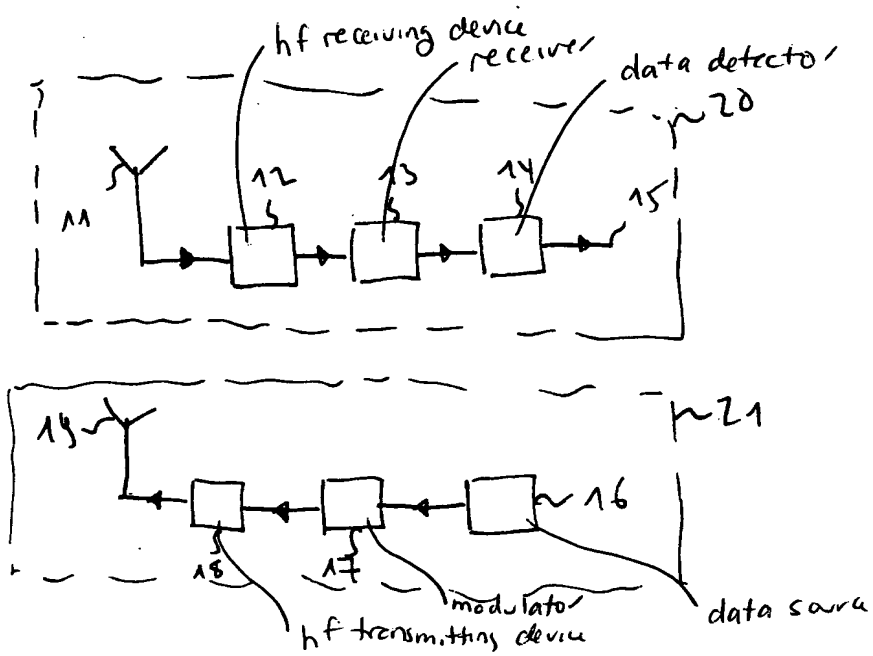 hf receiving device
receiver
data detector
20
12
13
14
15
11
19
21
16
18
17
modulator
hf transmitting device
data source